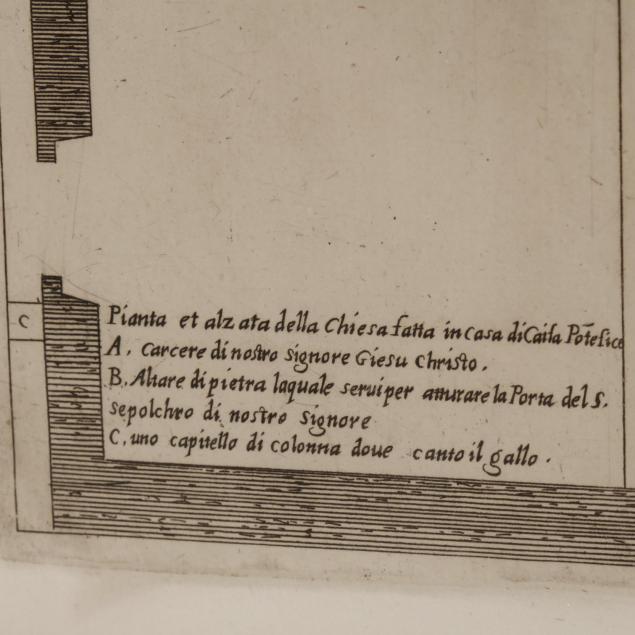 Pianta et alzata della Chiesa fatta in casa di Caifa Põtefice
A, carcere di nostro signore Giesu Christo.
B, Altare di pietra laquale serui per atturare la Porta del S.
sepolchro di nostro signore
C, uno capitello di colonna doue canto il gallo.
C